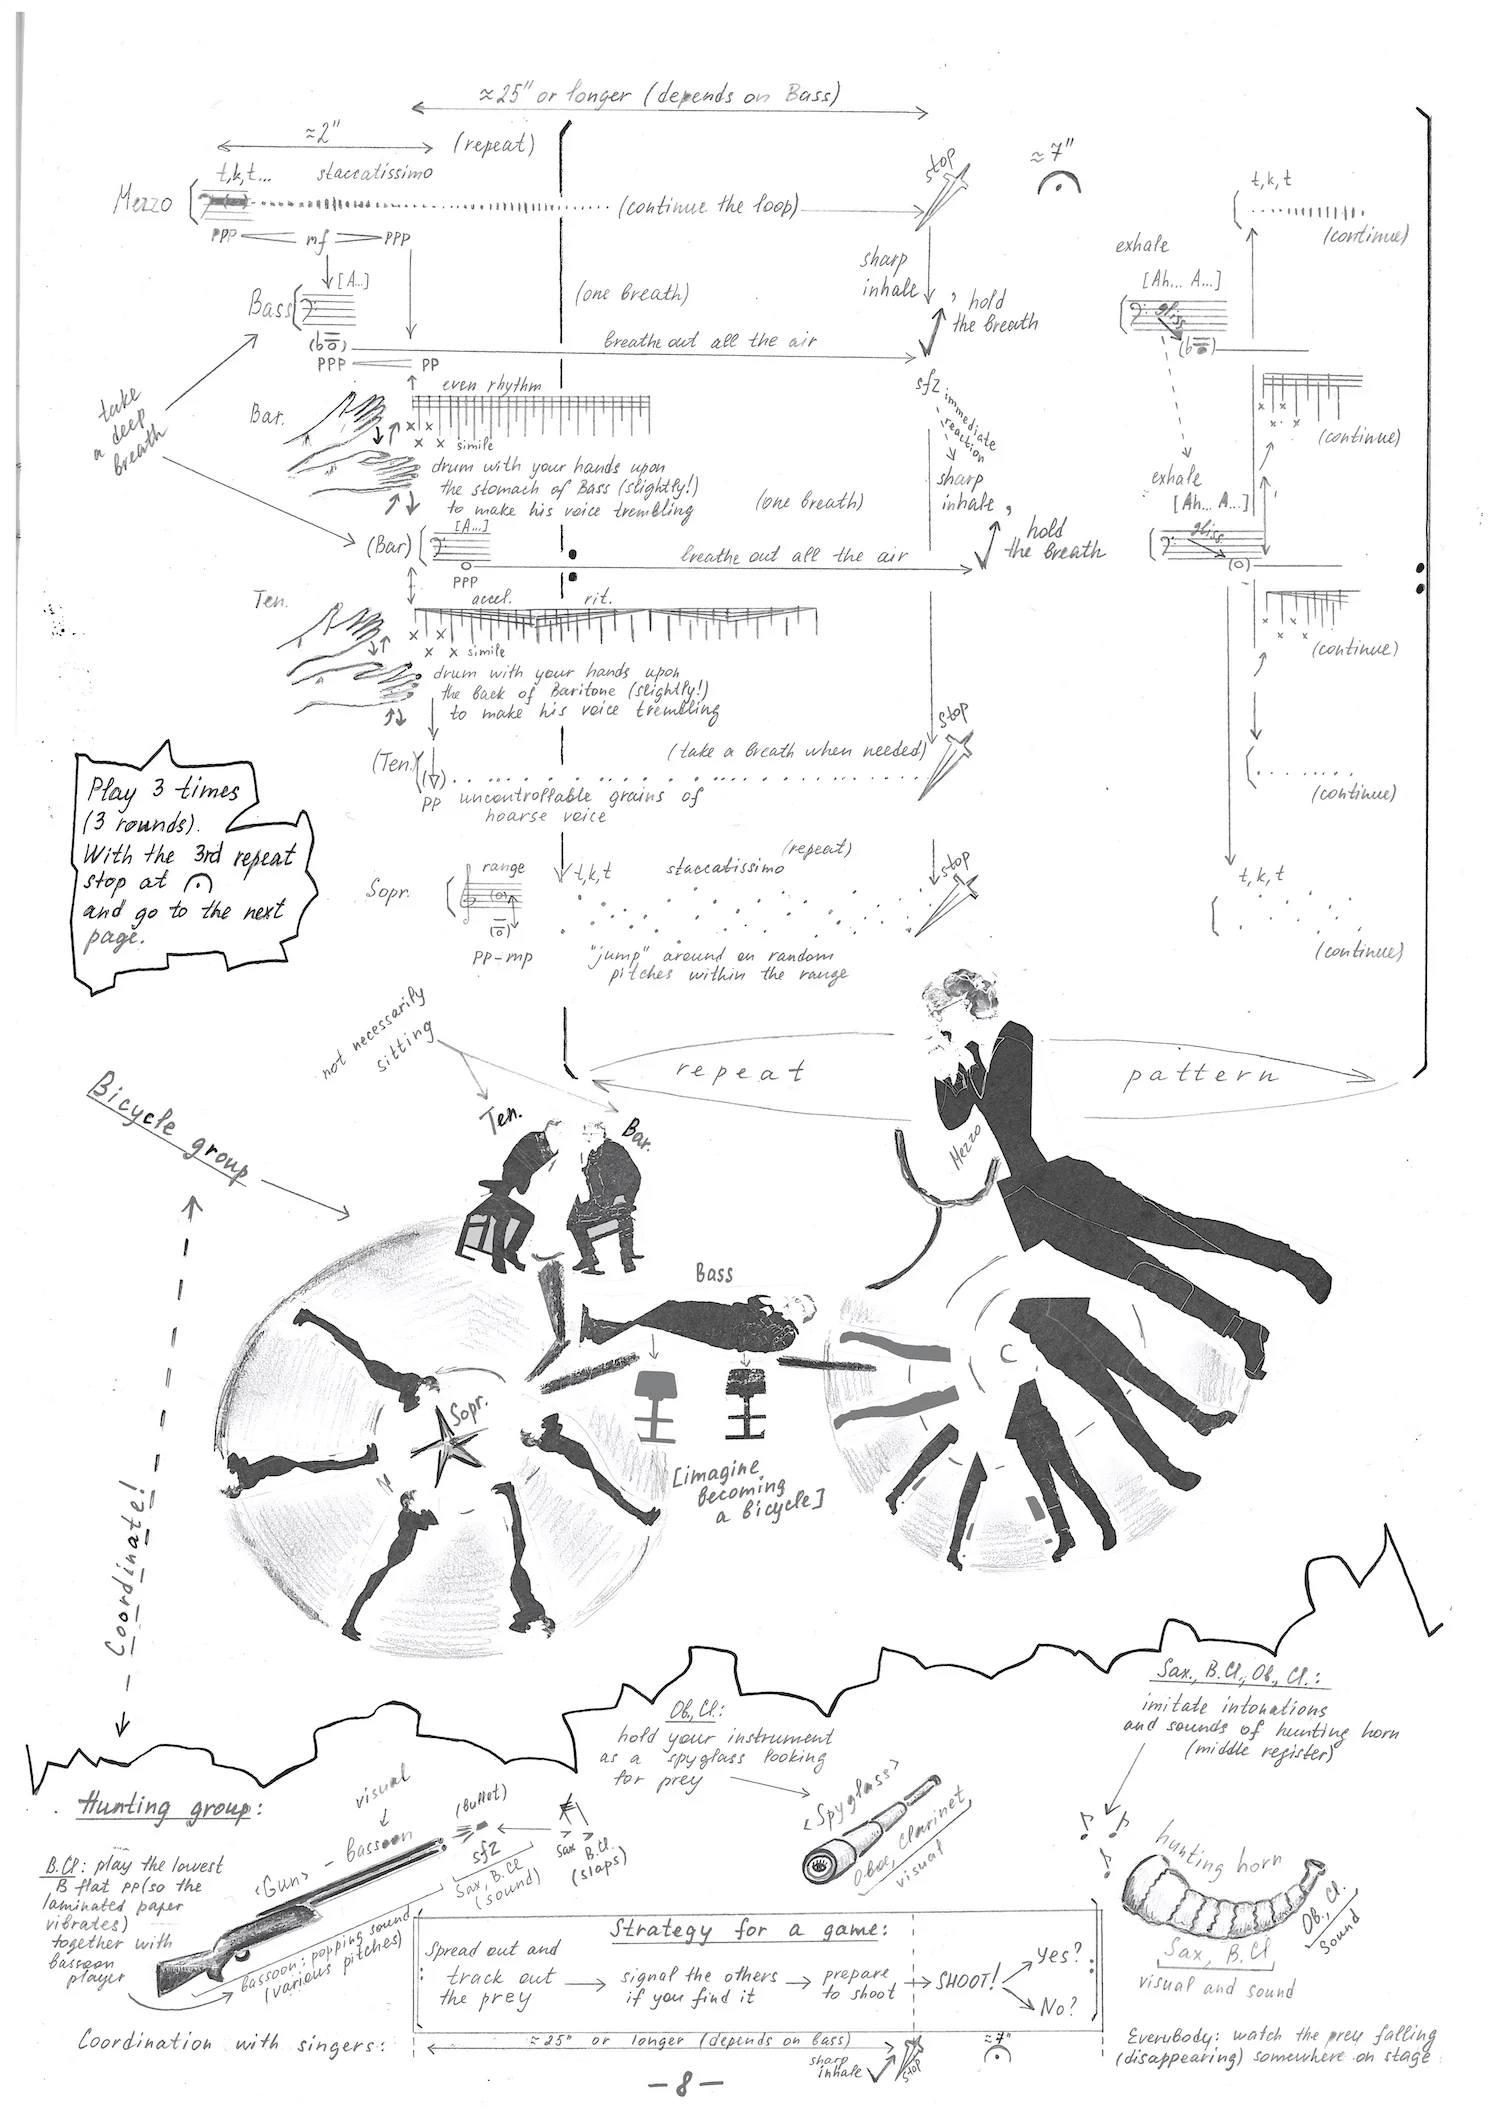 ≈25" or longer (depends on Bass)
≈2"
(repeat)
t,k,t... staccatissimo
Mezzo
(continue the loop)
stop
≈7"
t, k, t
(continue)
ppp mf ppp
[A...]
Bass
(one breath)
sharp
inhale,
hold
the breath
exhale
[Ah... A...]
gliss.
(bo)
breathe out all the air
ppp pp
sfz immediate
reaction
take
a deep
breath
even rhythm
Bar.
x x simile
drum with your hands upon
the stomach of Bass (slightly!)
to make his voice trembling
(one breath)
sharp
inhale,
hold
the breath
(continue)
exhale
[Ah... A...]
gliss.
(o)
[A...]
(Bar)
breathe out all the air
ppp
accel. rit.
Ten.
x x simile
drum with your hands upon
the back of Baritone (slightly!)
to make his voice trembling
(continue)
(Ten.)
(take a breath when needed)
stop
pp uncontrollable grains of
hoarse voice
(continue)
Play 3 times
(3 rounds).
With the 3rd repeat
stop at
and go to the next
page.
Sopr.
range
t,k,t staccatissimo
(repeat)
stop
pp-mp
"jump" around on random
pitches within the range
t, k, t
(continue)
not necessarily
sitting
repeat pattern
Bicycle group
Ten.
Bar.
Mezzo
Bass
Sopr.
C
[imagine
becoming
a bicycle]
Coordinate!
Ob., Cl.:
hold your instrument
as a spyglass looking
for prey
Sax., B.Cl., Ob., Cl.:
imitate intonations
and sounds of hunting horn
(middle register)
Hunting group:
visual
(bullet)
‹Gun› - bassoon
sfz
Sax, B.Cl
(sound)
Sax B.Cl.
(slaps)
‹Spyglass›
Oboe, Clarinet
visual
hunting horn
Ob., Cl.
sound
Sax, B.Cl
visual and sound
B.Cl: play the lowest
B flat pp (so the
laminated paper
vibrates)
together with
bassoon
player
bassoon: popping sound
(various pitches)
Strategy for a game:
Spread out and
track out
the prey
signal the others
if you find it
prepare
to shoot
SHOOT!
Yes?
No?
Coordination with singers:
≈25" or longer (depends on bass)
sharp
inhale
stop
≈7"
Everybody: watch the prey falling
(disappearing) somewhere on stage
- 8 -